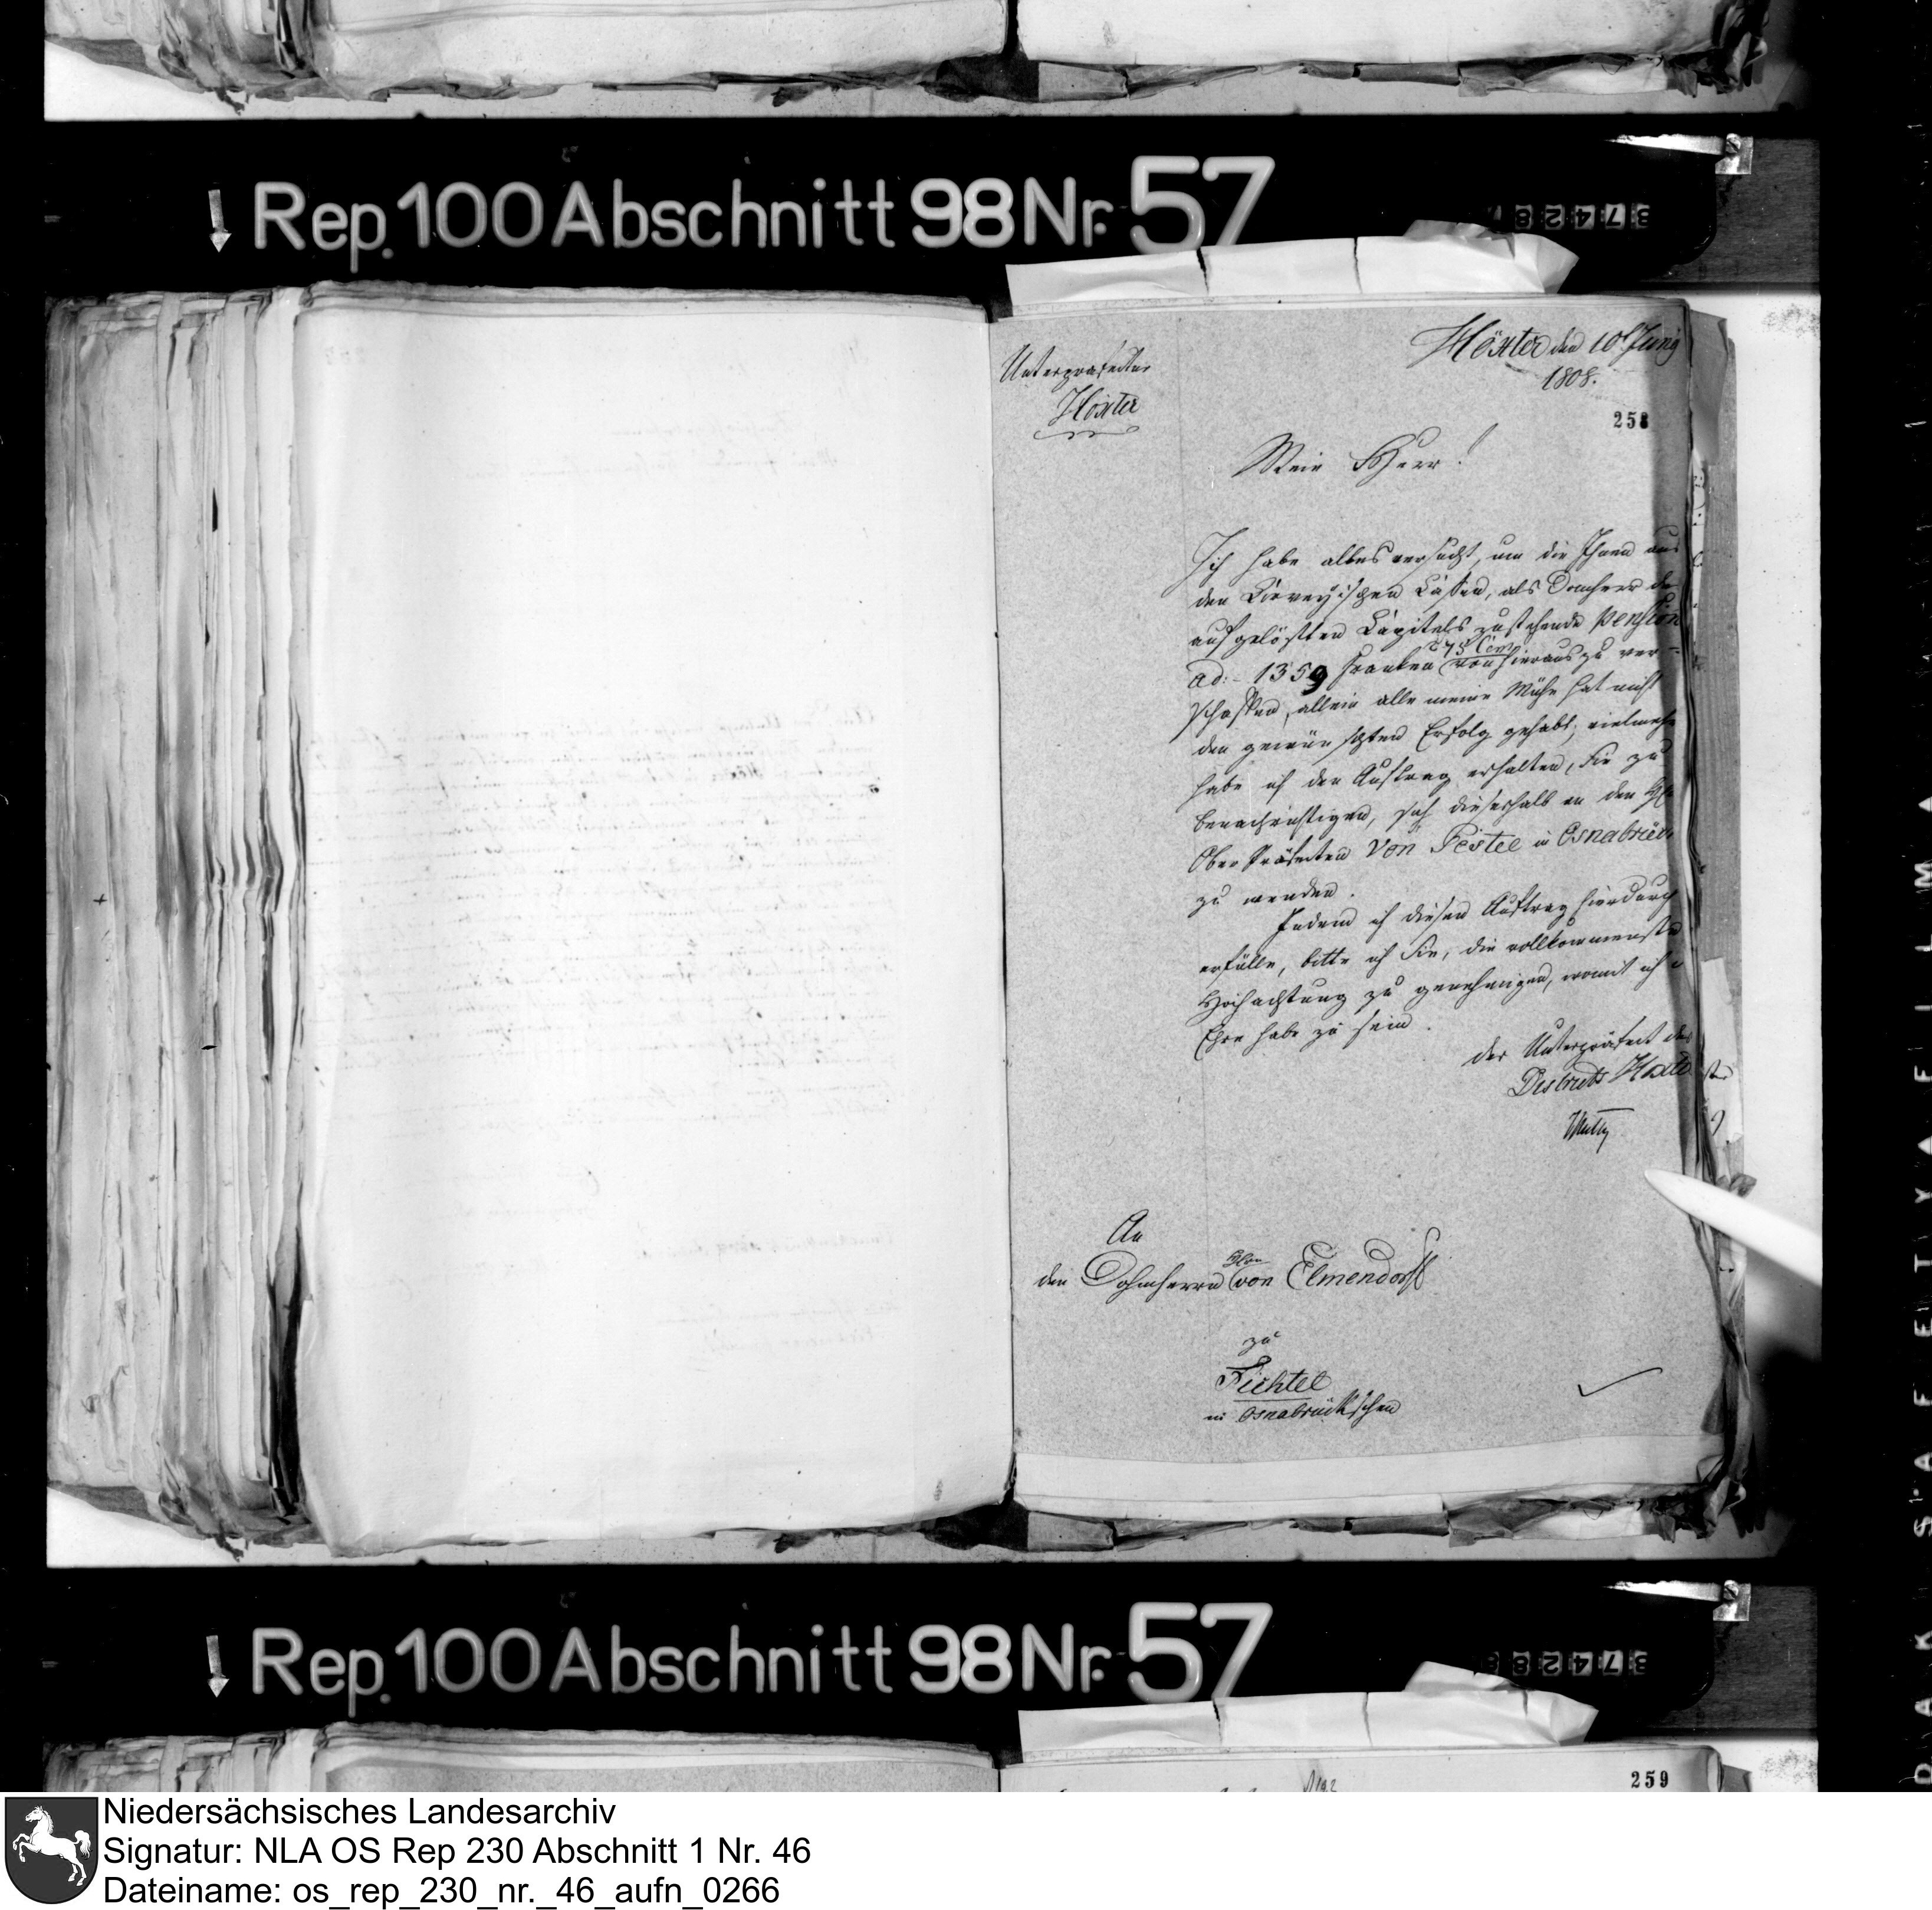 Rep. 100 Abschnitt 98 Nr. 57
Unterpräfectur
Höxter
Höxter den 10t Juny
1808.
258
Mein Herr!
Ich habe alles versucht, um die Ihnen aus
den Corveyischen Cassen, als Domherr des
aufgelösten Capitels zustehende Pension
ad:- 1359 Franken 75 Cent von hieraus zu ver-
schaffen, allein alle meine Mühe hat nicht
den gewünschten Erfolg gehabt; vielmehr
habe ich den Auftrag erhalten, Sie zu
benachrichtigen, sich dieserhalb an den
Ober Präfecten von Pestel in Osnabrück
zu wenden.
Indem ich diesen Auftrag hierdurch
erfülle, bitte ich Sie, die vollkommenste
Hochachtung zu genehmigen, womit ich
Ehre habe zu sein.
der Unterpräfect des
Districts Höxter
An
den Dohmherrn von Elmendorff
zu
Füchtel
in Osnabrückschen
Rep. 100 Abschnitt 98 Nr. 57
259
Niedersächsisches Landesarchiv
Signatur: NLA OS Rep 230 Abschnitt 1 Nr. 46
Dateiname: os_rep_230_nr._46_aufn_0266